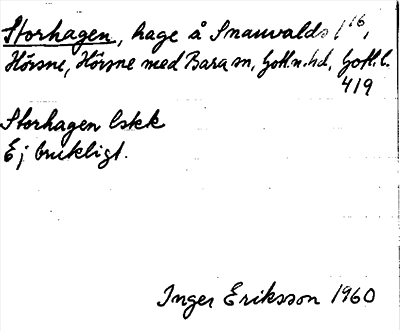 Storhagen, hage å Snauvalds 1¹⁶,
Hörsne, Hörsne med Bara sn, Gotl.n.hd, Gotl.l.
419
Storhagen Lskk
Ej brukligt.
Inger Eriksson 1960